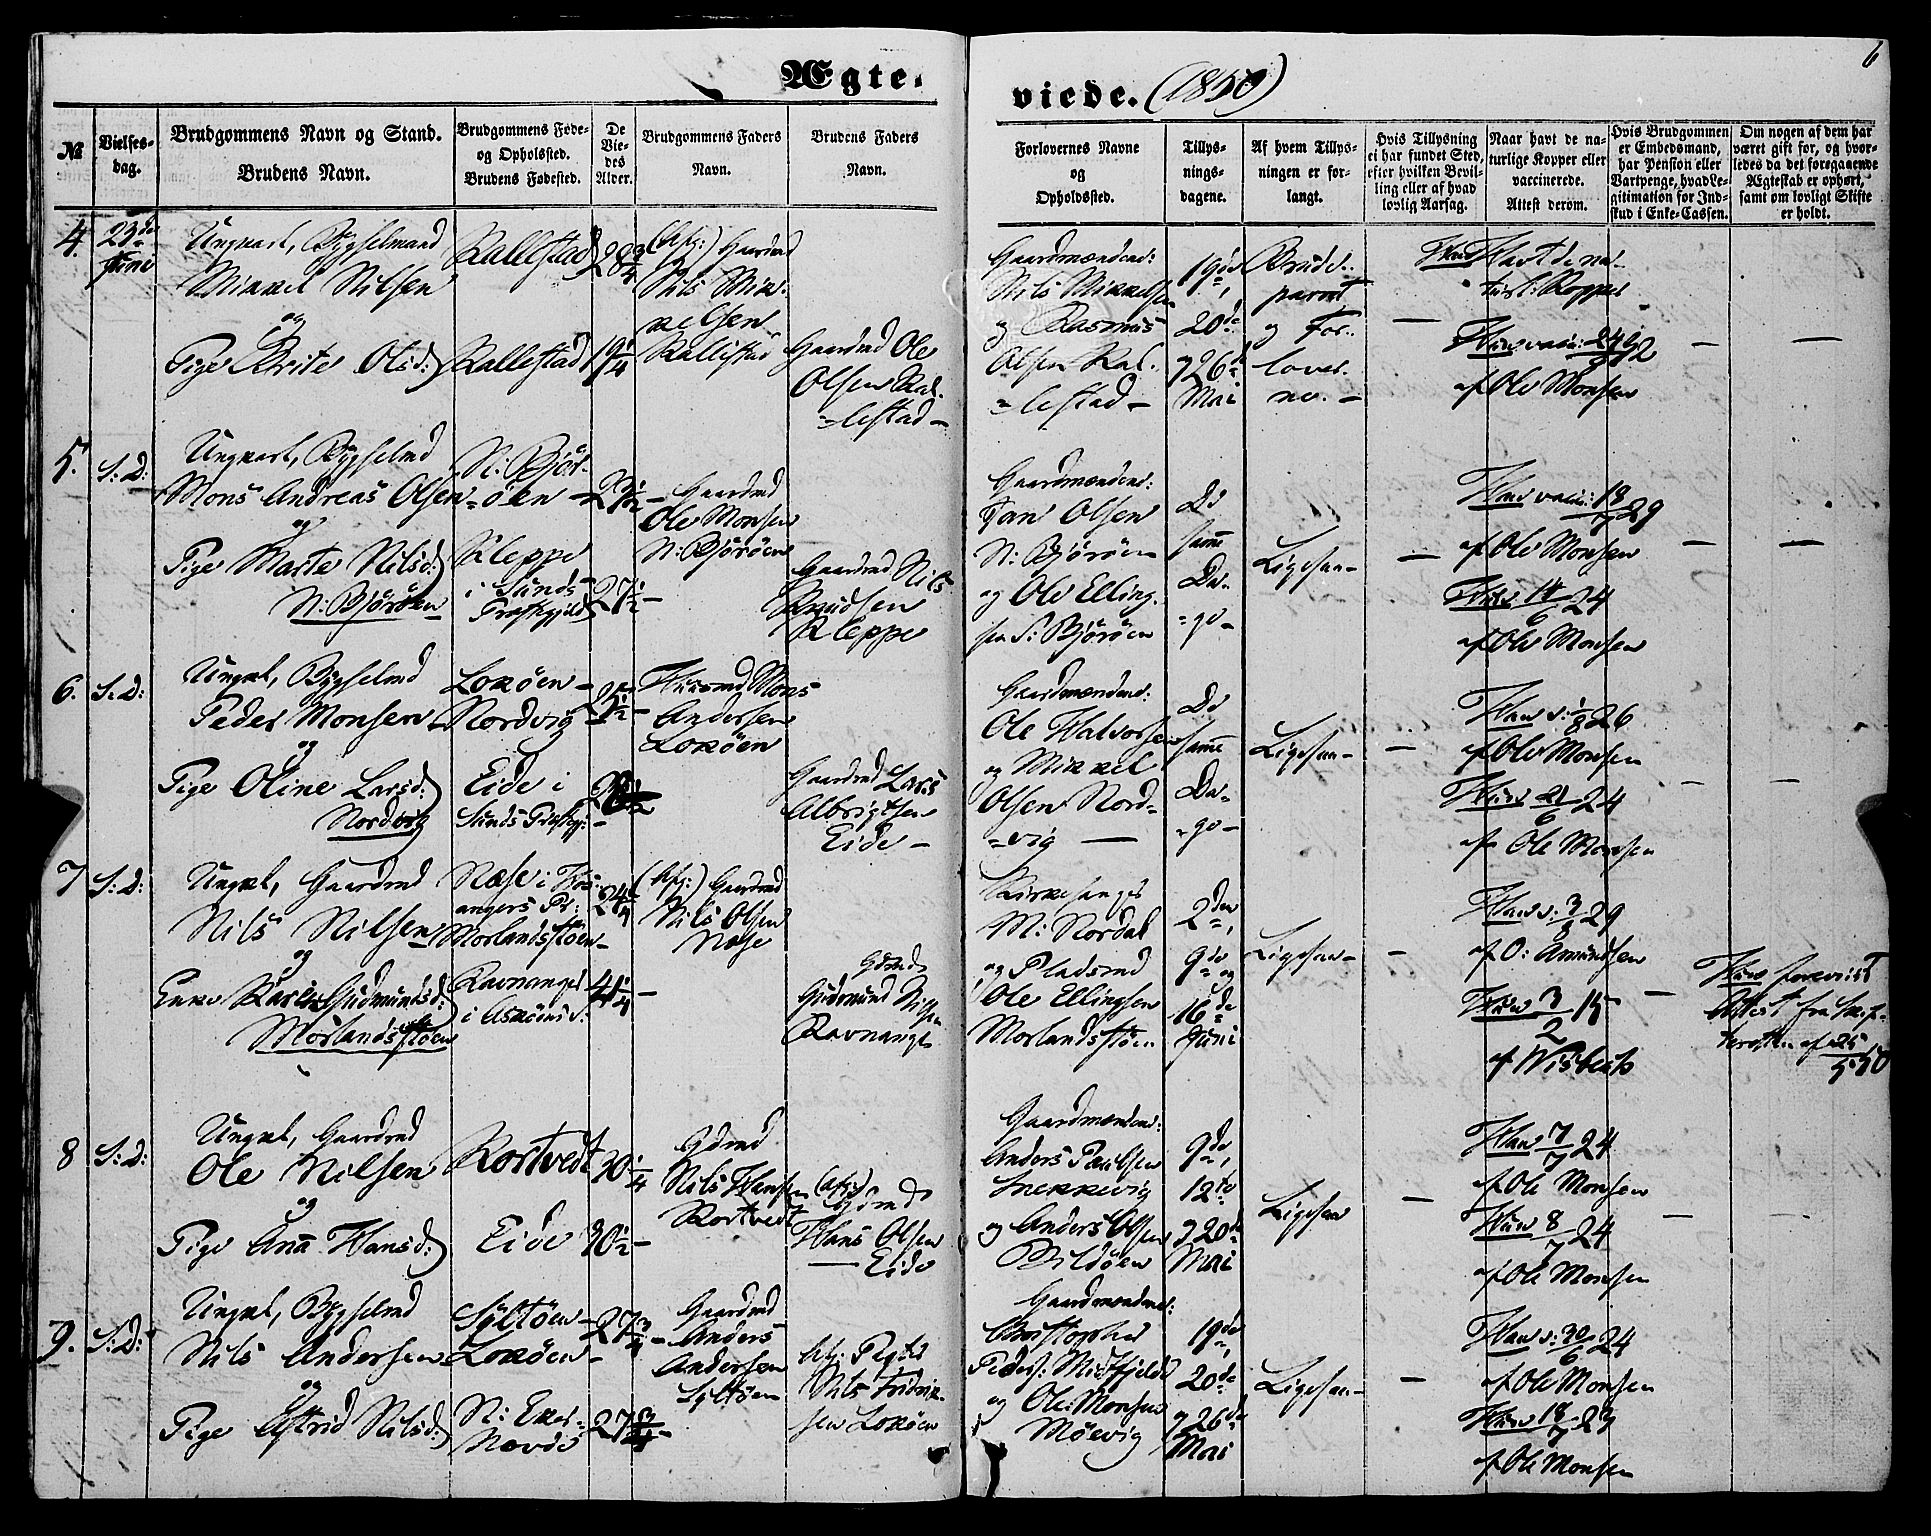 6
Ægteviede. (1850)
№
Vielsesdag.
Brudgommens Navn og Stand.
Brudens Navn.
Brudgommens Føde-
og Opholssted.
Brudens Fødested.
De
Vie-
des
Alder.
Brudgommens Faders
Navn.
Brudens Faders
Navn.
Forlovernes Navne
og
Opholdssted.
Tillys-
nings-
dagene.
Af hvem Tillys-
ningen er for-
langt.
Hvis Tillysning
ei har fundet Sted,
efter hvilken Bevil-
ling eller af hvad
lovlig Aarsag.
Naar havt de na-
turlige Kopper eller
vaccinerede.
Attest derom.
Hvis Brudgommen
er Embedsmand,
har Pension eller
Vartpenge, hvad Le-
gitimation for Ind-
skud i Enke-Cassen.
Om nogen af dem har
været gift før, og hvor-
ledes da det foregaaende
Ægteskab er ophørt,
samt om lovligt Skifte
er holdt.
4.
23de
Juni
Ungkarl, Bygselmand
Mikkel Nilsen
og
Pige Brite Olsd:
Kallestad
28 3/4
Kallestad
19 1/4
Gaardmd
Nils Mik-
kelsen
Kallestad
Gaardmd Ole
Olsen Kal-
lestad
Gaardmændene:
Nils Mikkelsen
og Rasmus
Olsen Kal-
lestad
19de,
20de
og 26de
Mai
Brude-
parret
og For-
lover-
ne.
Han Havt de na-
turl: Kopper
Hun vacc: 24/9 32
af Ole Monsen
5.
S: D:
Ungkarl, Bygselmd
Mons Andreas Olsen
og
Pige Marte Nilsd:
N: Bjørøen
N: Bjør-
øen
Kleppe
i Sunds
Præstegjeld
27 1/2
Gaardmd
Ole Monsen
N: Bjørøen
Gaardmd Nils
Knudsen
Kleppe
Gaardmændene:
Jan Olsen
N: Bjørøen
og Ole Elling-
sen S: Bjørøen
De
samme
Da-
ge
Ligesaa
Han vacc: 18/7 29
af Ole Monsen
Hun 14/6 24
af Ole Monsen
6.
S: D:
Ungkl, Bygselmd
Peder Monsen
og
Pige Oline Larsd:
Nordvig
Lokøen
Nordvig
Eide i
Sunds Præstegj:
25 1/2
Huusmd Mons
Andersen
Lokøen
Gaardmd Lars
Albrigtsen
Eide
Gaardmændene:
Ole Halvorsen
og Mikkel
Olsen Nord-
vig
De
samme
Da-
ge
Ligesaa
Han v: 1/8 26
af Ole Monsen
Hun 21/6 24
af Ole Monsen
7
S: D:
Ungkl, Gaardmd
Nils Nilsen
og
Enke Kari Gudmundsd:
Morlandsstøen
Næse i Ho-
angers Pr:
Morlandsstøen
Ravnanger
i Askøens S:
24 1/4
41 1/4
Gaardmd
Nils Olsen
Næse
Gdmd
Gudmund Nilsen
Ravnanger
Kirkesanger
M: Nordal
og Pladsmd
Ole Ellingsen
Morlandsstøen
2den,
9de og
16de
Juni
Ligesaa
Han v: 3/8 29
af O: Amundsen
Hun 3/2 15
af Wisbech
Hun foreviist
Attest fra Skif-
teretten af 25/5 50
8
S: D:
Ungkl, Gaardmd
Ole Nilsen
og
Pige Anna Hansd:
Kortvedt
Eide
30 1/4
30 1/2
Gdmd
Nils Hansen
Kortvedt
Gdmd
Hans Olsen
Eide
Gaardmændene:
Anders Paulsen
Snekkevig
og Anders Olsen
Bildøen
9de,
12te
og 20de
Mai
Ligesaa
Han 7/7 24
af Ole Monsen
Hun 8/7 24
af Ole Monsen
9.
S: D:
Ungkl, Bygselmd
Nils Andersen
og
Pige Astrid Nilsd:
Syltøen
Lokøen
N: Eker-
Novde
27 3/4
27 3/4
Gaardmd
Anders
Andersen
Syltøen
Nils Fridrik-
sen Lokøen
Gaardmændene:
Christopher
Peders: Midtfjeld
og Ole Monsen
Møevig
19de,
20de
og 26de
Mai
Ligesaa
Han v: 30/6 24
af Ole Monsen
Hun 18/7 23
af Ole Monsen